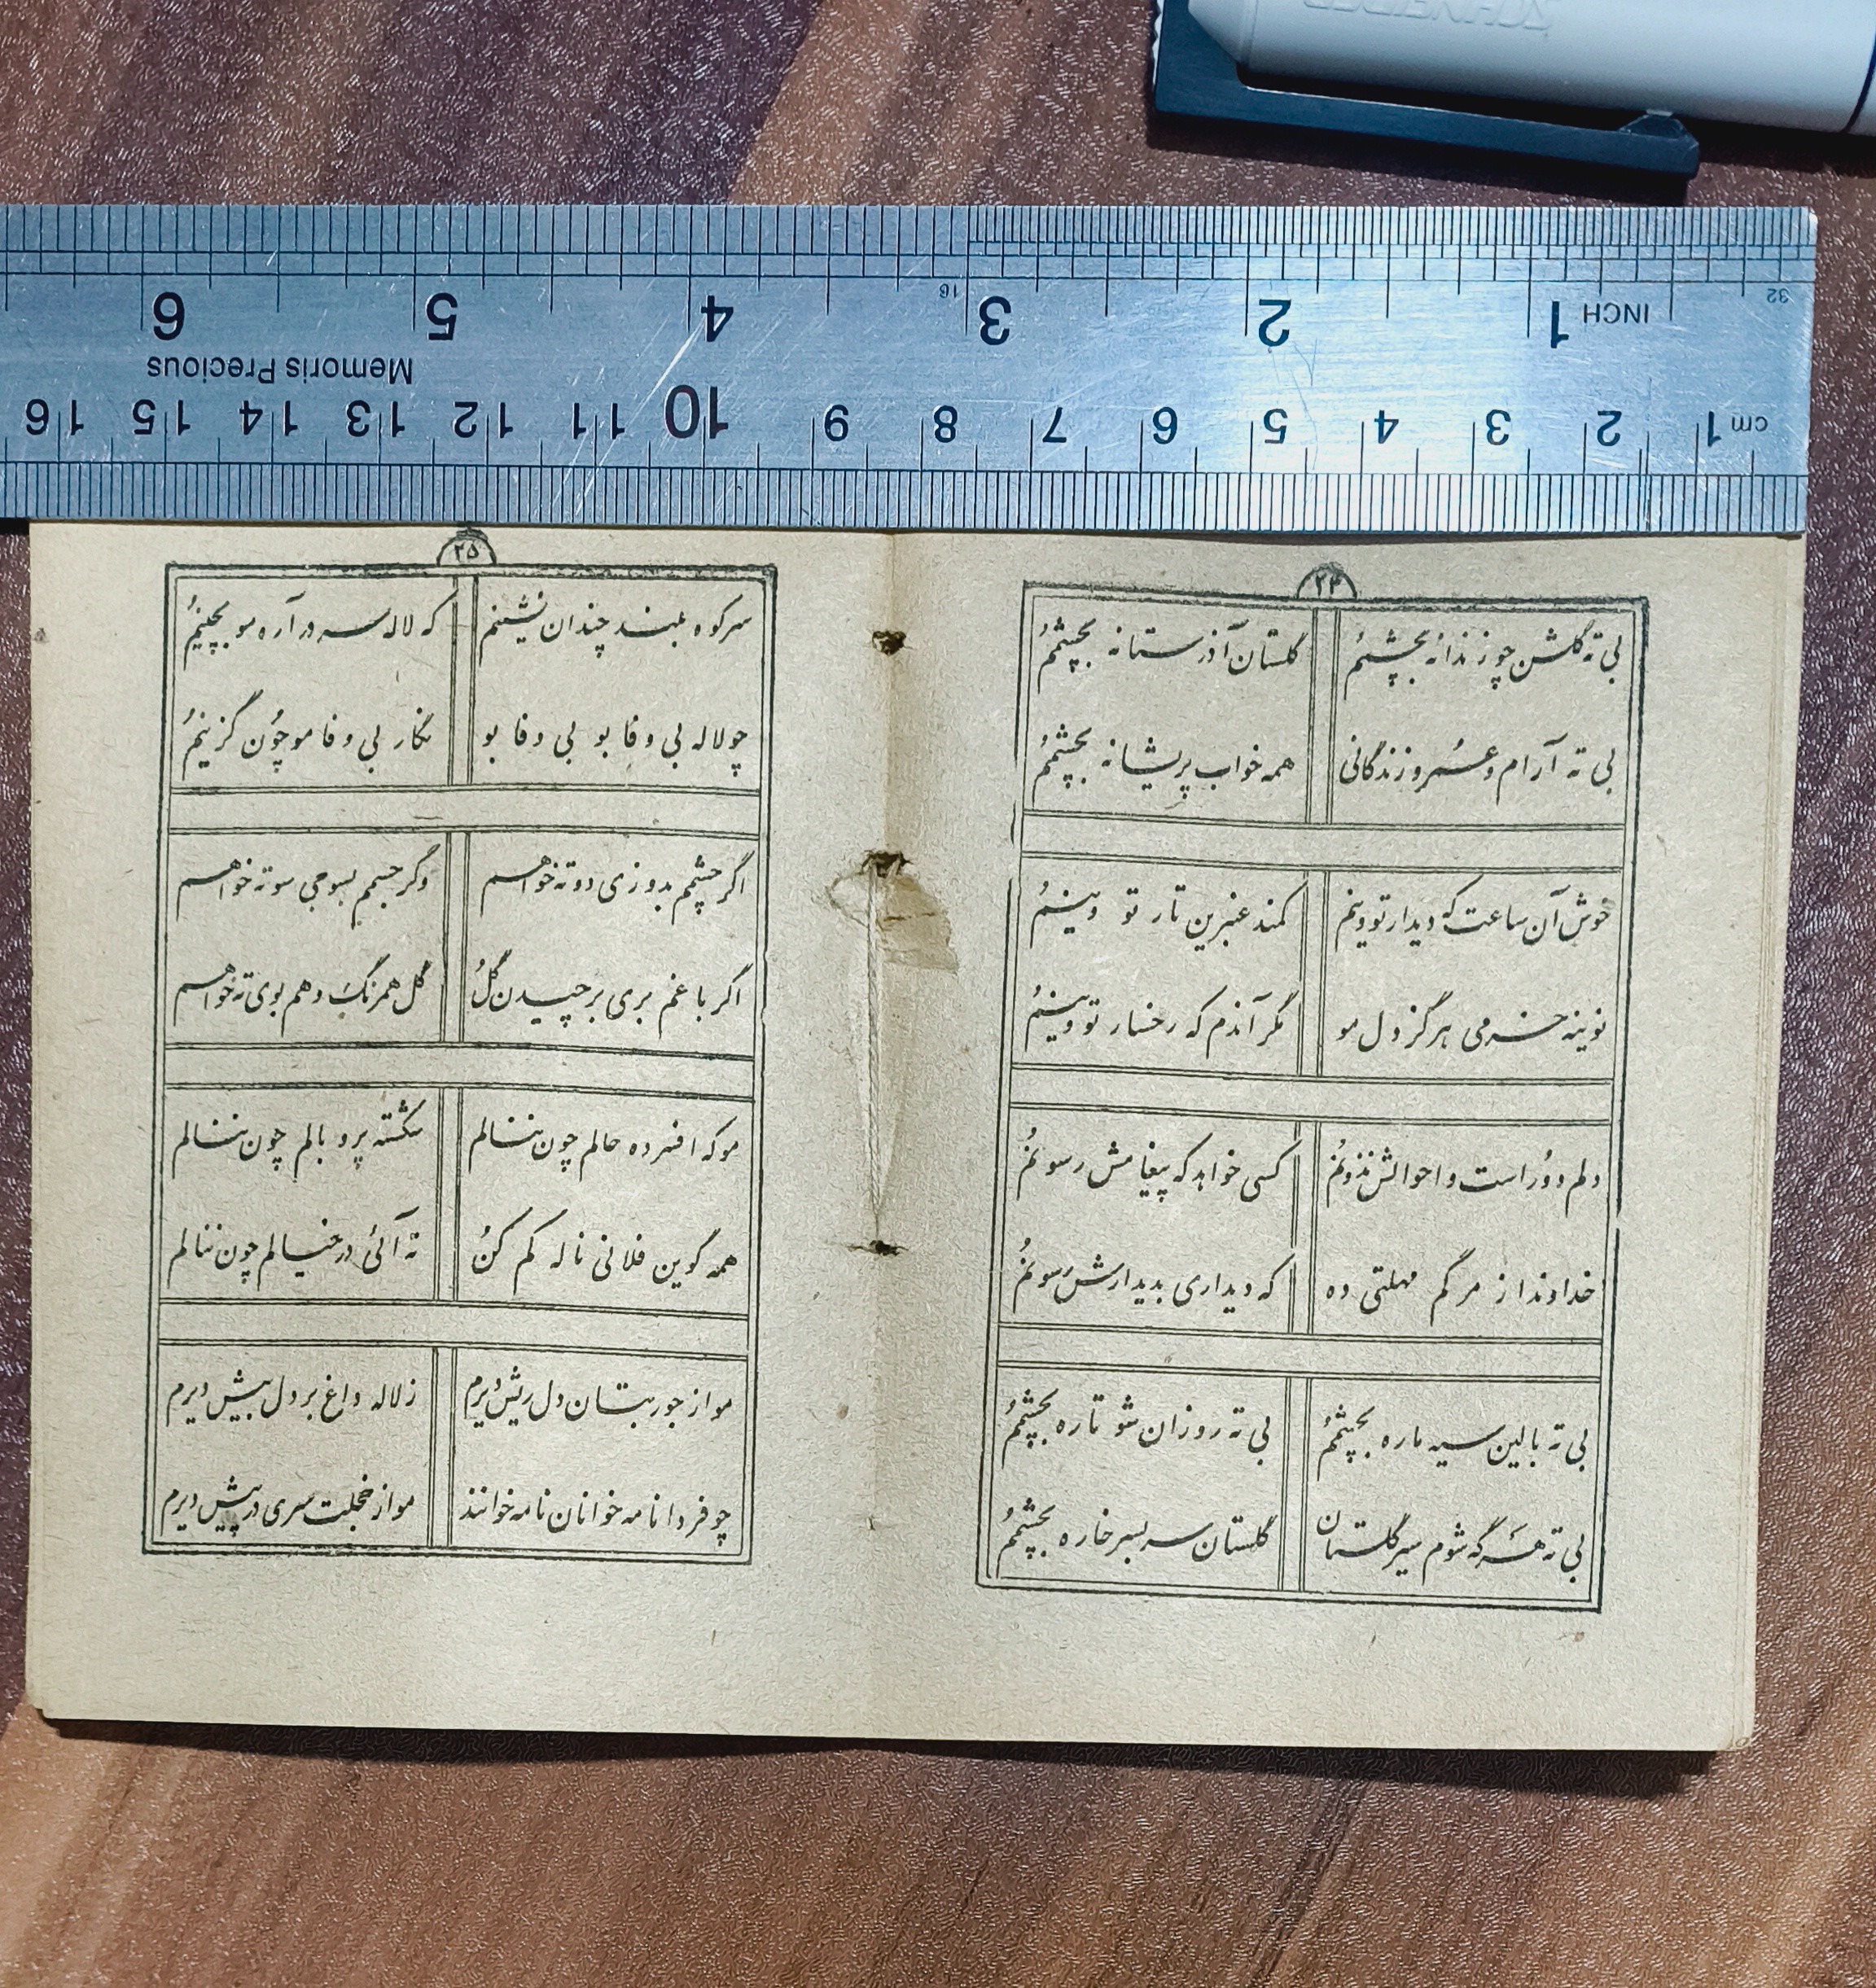 SCHNEIDER
32
INCH 1 2 3 16 4 5 6
Memoris Precious
cm 1 2 3 4 5 6 7 8 9 10 11 12 13 14 15 16
۲۴
بی ته گلشن چو زندانه بچشممُ گلستان آذرستانه بچشممُ
بی ته آرام و عُمر و زندگانی همه خواب پریشانه بچشممُ
خوش آن ساعت که دیدار تو وینم کمند عنبرین تار تو وینمُ
نوینه خرمی هرگز دل مو مگر آندم که رخسار تو وینمُ
دلم دوُر است و احوالش ندونمُ کسی خواهد که پیغامش رسونمُ
خداوندا ز مرگم مهلتی ده که دیداری بدیدارش رسونمُ
بی ته بالین سیه ماره بچشممُ بی ته روزان شو تاره بچشممُ
بی ته هَر گه شوم سیر گلستان گلستان سر بسر خاره بچشممُ
۲۵
سرکوه بلند چندان نشینم که لاله سر در آره مو بچینمُ
چو لاله بی وفا بو بی وفا بو نگار بی وفا مو چُون گزینمُ
اگر چشمم بدوزی دوته خواهم وگر جسمم بسوجی سوته خواهم
اگر باغم بری بر چیدن گلُ گل همرنگ و هم بوی ته خواهم
مو که افسرده حالم چون ننالم شکسته پر و بالم چون ننالم
همه گوین فلانی ناله کم کنُ ته آئی در خیالم چون ننالم
مو از جور بتان دل ریش دیرم ز لاله داغ بر دل بیش دیرم
چو فردا نامه خوانان نامه خوانند مو از خجلت سری در پیش دیرم